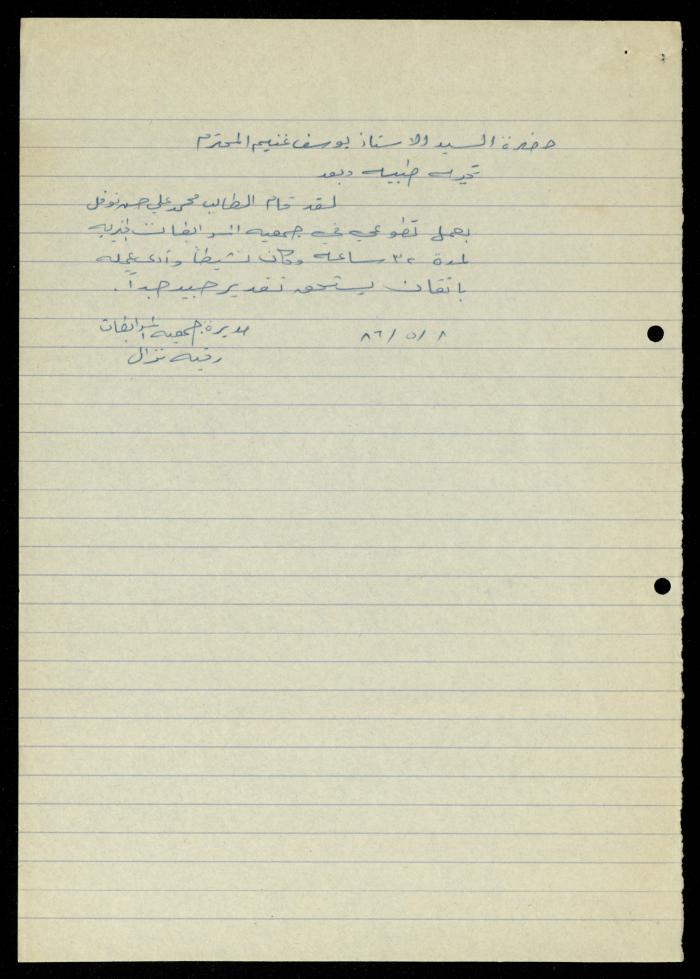 حضرة السيد الاستاذ يوسف غنيم المحترم
تحيه طيبه وبعد
لقد قام الطالب محمد علي حسن نوفل
بعمل تطوعي في جمعيه الخيريه
لمدة ٣٠ ساعه وكان نشيطاً وأدى عمله
باتقان يستحق تقدير جيد جداً.
٨ / ٥ / ٨٦
مديرة جمعيه
رقيه نزال